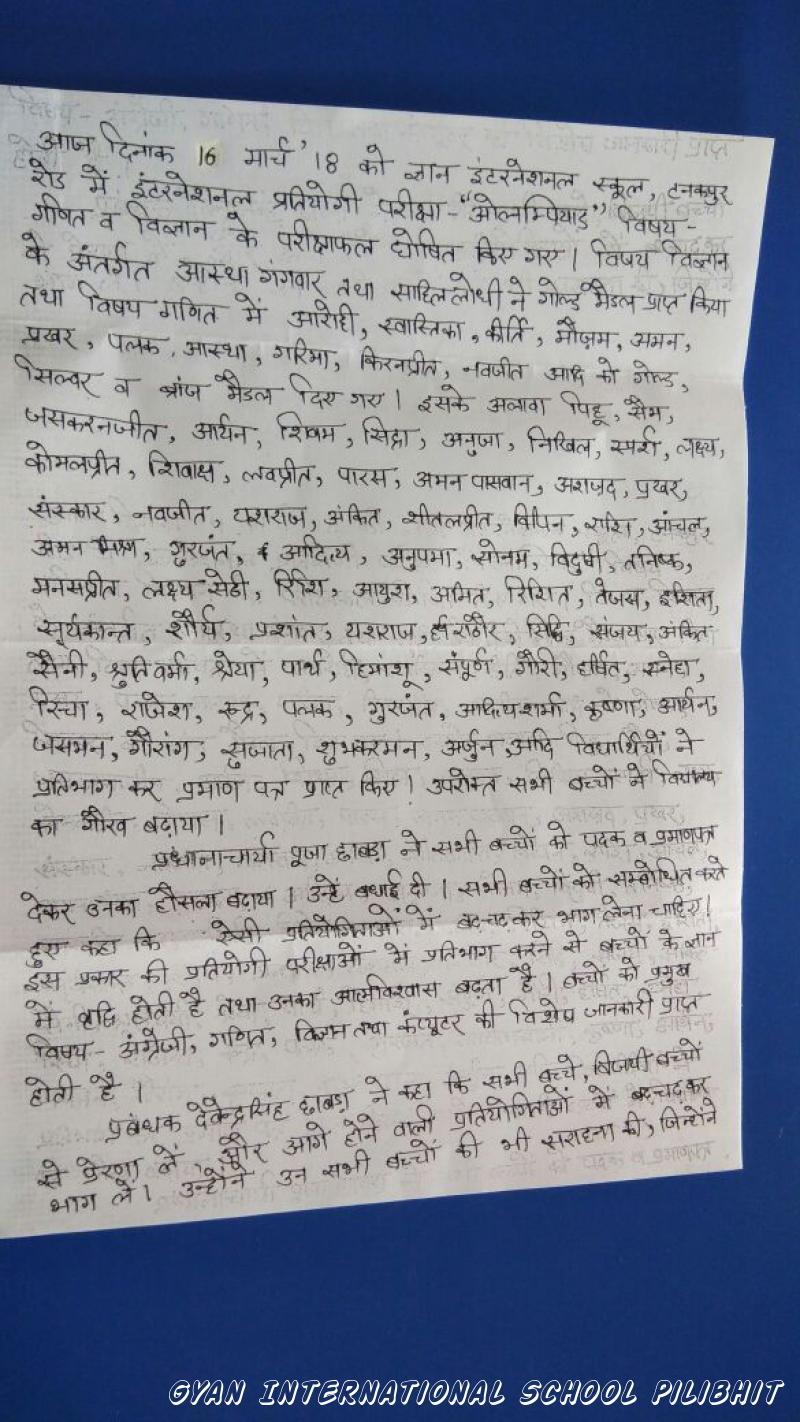 आज दिनांक 16 मार्च '18 को ज्ञान इंटरनेशनल स्कूल, टनकपुर
रोड में इंटरनेशनल प्रतियोगी परीक्षा - "ओलम्पियाड" विषय -
गणित व विज्ञान के परीक्षाफल घोषित किए गए। विषय विज्ञान
के अंतर्गत आस्था गंगवार तथा साहिल लोधी ने गोल्ड मैडल प्राप्त किया
तथा विषय गणित में आरोही, स्वास्तिका, कीर्ति, मौज़म, अमन,
प्रखर, पलक, आस्था, गरिमा, किरनप्रीत, नवजीत आदि को गोल्ड,
सिल्वर व ब्रांज मैडल दिए गए। इसके अलावा पिहू, सैम,
जसकरनजीत, आर्यन, शिवम, सिद्रा, अनुजा, निखिल, स्पर्श, लक्ष्य,
कोमलप्रीत, शिवाक्ष, लवप्रीत, पारस, अमन पासवान, अशज़द, प्रखर,
संस्कार, नवजीत, यशराज, अंकित, शीतलप्रीत, विपिन, राशि, आंचल,
अमन, गुरजंत, आदित्य, अनुपमा, सोनम, विदुषी, तनिष्क,
मनसप्रीत, लक्ष्य सेठी, रितिश, आयुश, अमित, रिशित, तेजस, इशिता,
सूर्यकान्त, शौर्य, प्रशांत, यशराज, हर्ष राठौर, सिद्धि, संजय, अंकित
सैनी, श्रुति वर्मा, श्रेया, पार्थ, हिमांशू, संपूर्ण, गौरी, हर्षित, स्नेहा,
रिचा, राजेश, रूद्र, पलक, गुरजंत, आदित्य शर्मा, कृष्णा, आर्यन,
जसमन, गौरांग, सुजाता, शुभकरमन, अर्जुन, आदि विद्यार्थियों ने
प्रतिभाग कर प्रमाण पत्र प्राप्त किए। उपरोक्त सभी बच्चों ने विद्यालय
का गौरव बढ़ाया।
प्रधानाचार्या पूजा छाबड़ा ने सभी बच्चों को पदक व प्रमाणपत्र
देकर उनका हौसला बढ़ाया। उन्हें बधाई दी। सभी बच्चों को सम्बोधित करते
हुए कहा कि ऐसी प्रतियोगिताओं में बढ़चढ़कर भाग लेना चाहिए।
इस प्रकार की प्रतियोगी परीक्षाओं में प्रतिभाग करने से बच्चों के ज्ञान
में वृद्धि होती है तथा उनका आत्मविश्वास बढ़ता है। बच्चों को प्रमुख
विषय - अंग्रेजी, गणित, विज्ञान तथा कंप्यूटर की विशेष जानकारी प्राप्त
होती है।
प्रबंधक देवेन्द्र सिंह छाबड़ा ने कहा कि सभी बच्चे, विजयी बच्चों
से प्रेरणा लें और आगे होने वाली प्रतियोगिताओं में बढ़चढ़कर
भाग लें। उन्होंने उन सभी बच्चों की भी सराहना की, जिन्होंने
GYAN INTERNATIONAL SCHOOL PILIBHIT